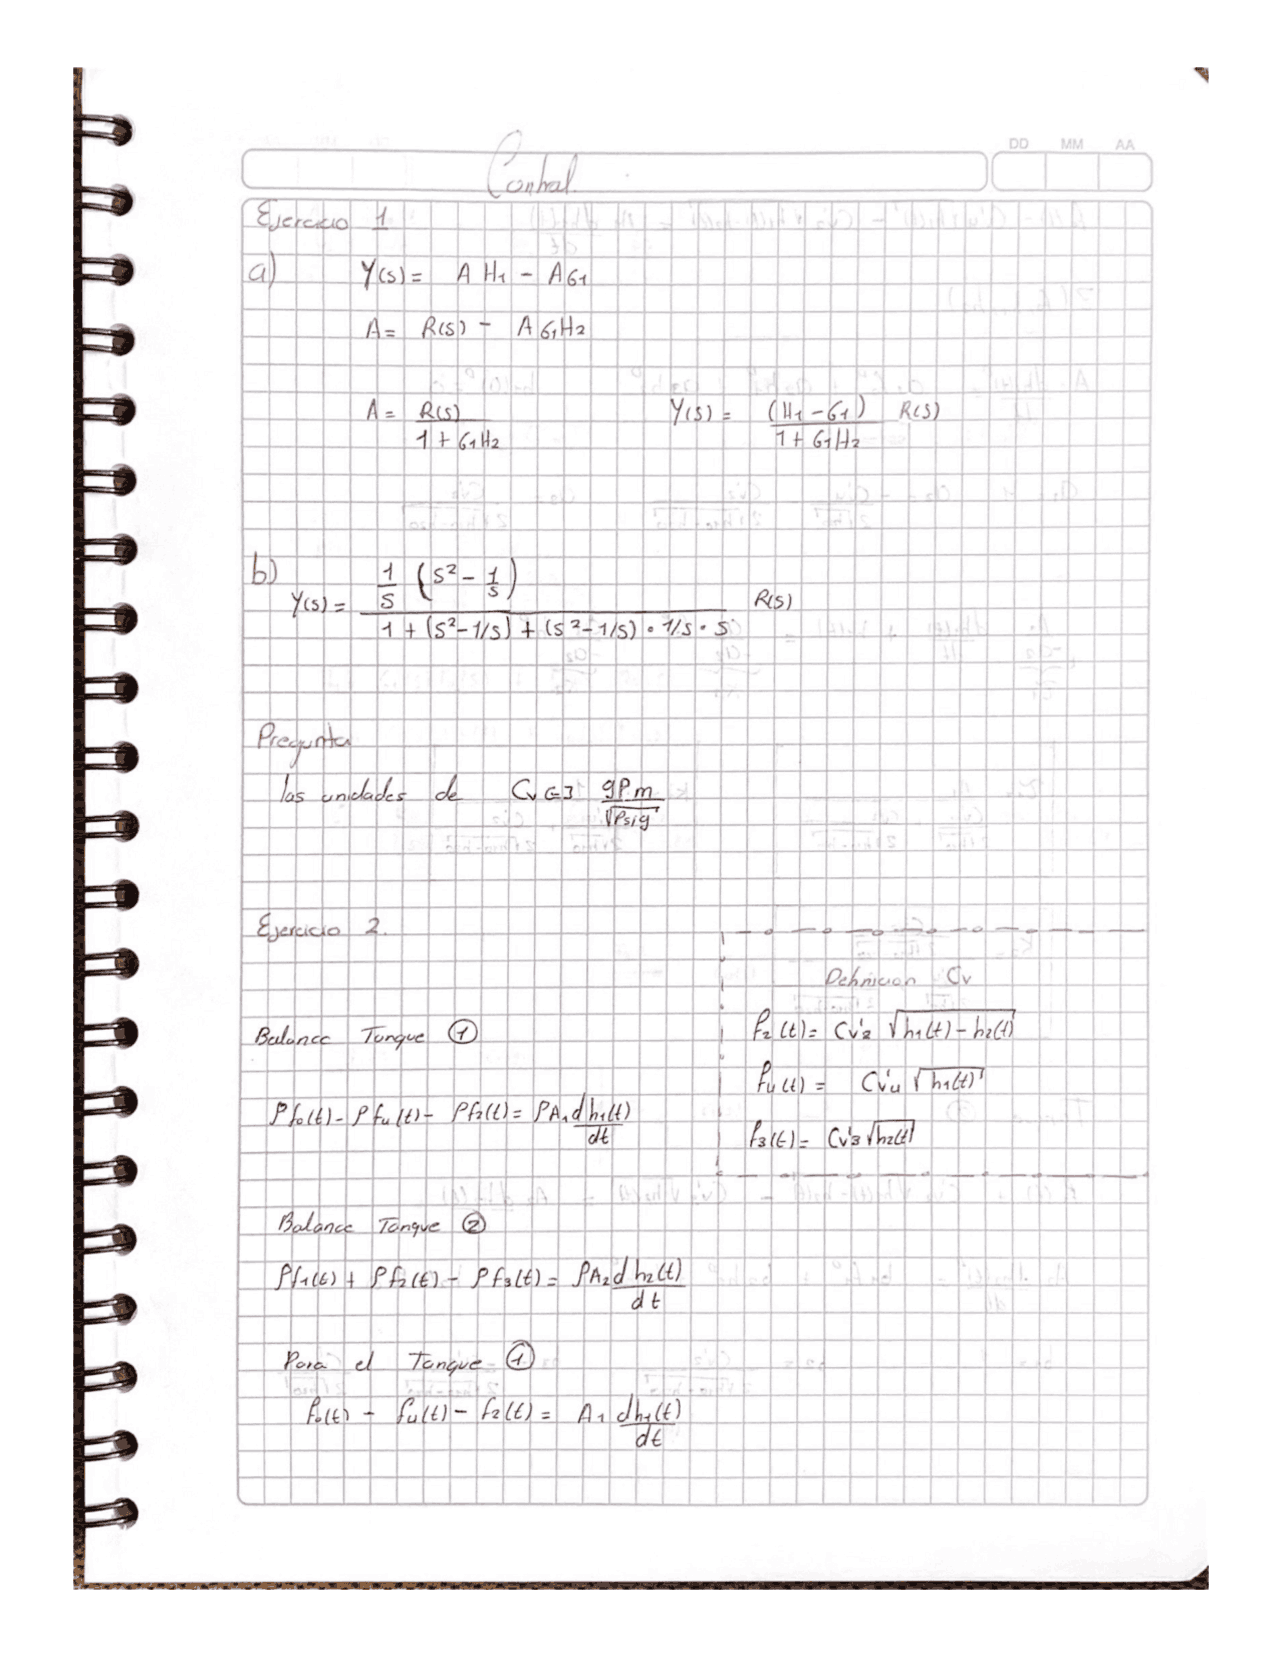 DD MM AA
Control
Ejercicio 1
a) Y(s) = A H1 - A G1
A = R(s) - A G1H2
A = R(s) / 1 + G1H2    Y(s) = (H1 - G1) / 1 + G1H2 R(s)
b) Y(s) = 1/s (s² - 1/s) / 1 + (s² - 1/s) + (s² - 1/s) • 1/s • s R(s)
Pregunta
las unidades de Cv [=] gpm / √Psig
Ejercicio 2.
Definicion Cv
f2(t) = Cv'2 √h1(t) - h2(t)
f4(t) = Cv'4 √h1(t)
f3(t) = Cv'3 √h2(t)
Balance Tanque ①
ρfo(t) - ρf4(t) - ρf2(t) = ρA1 dh1(t) / dt
Balance Tanque ②
ρf1(t) + ρf2(t) - ρf3(t) = ρA2 dh2(t) / dt
Para el Tanque ①
fo(t) - f4(t) - f2(t) = A1 dh1(t) / dt